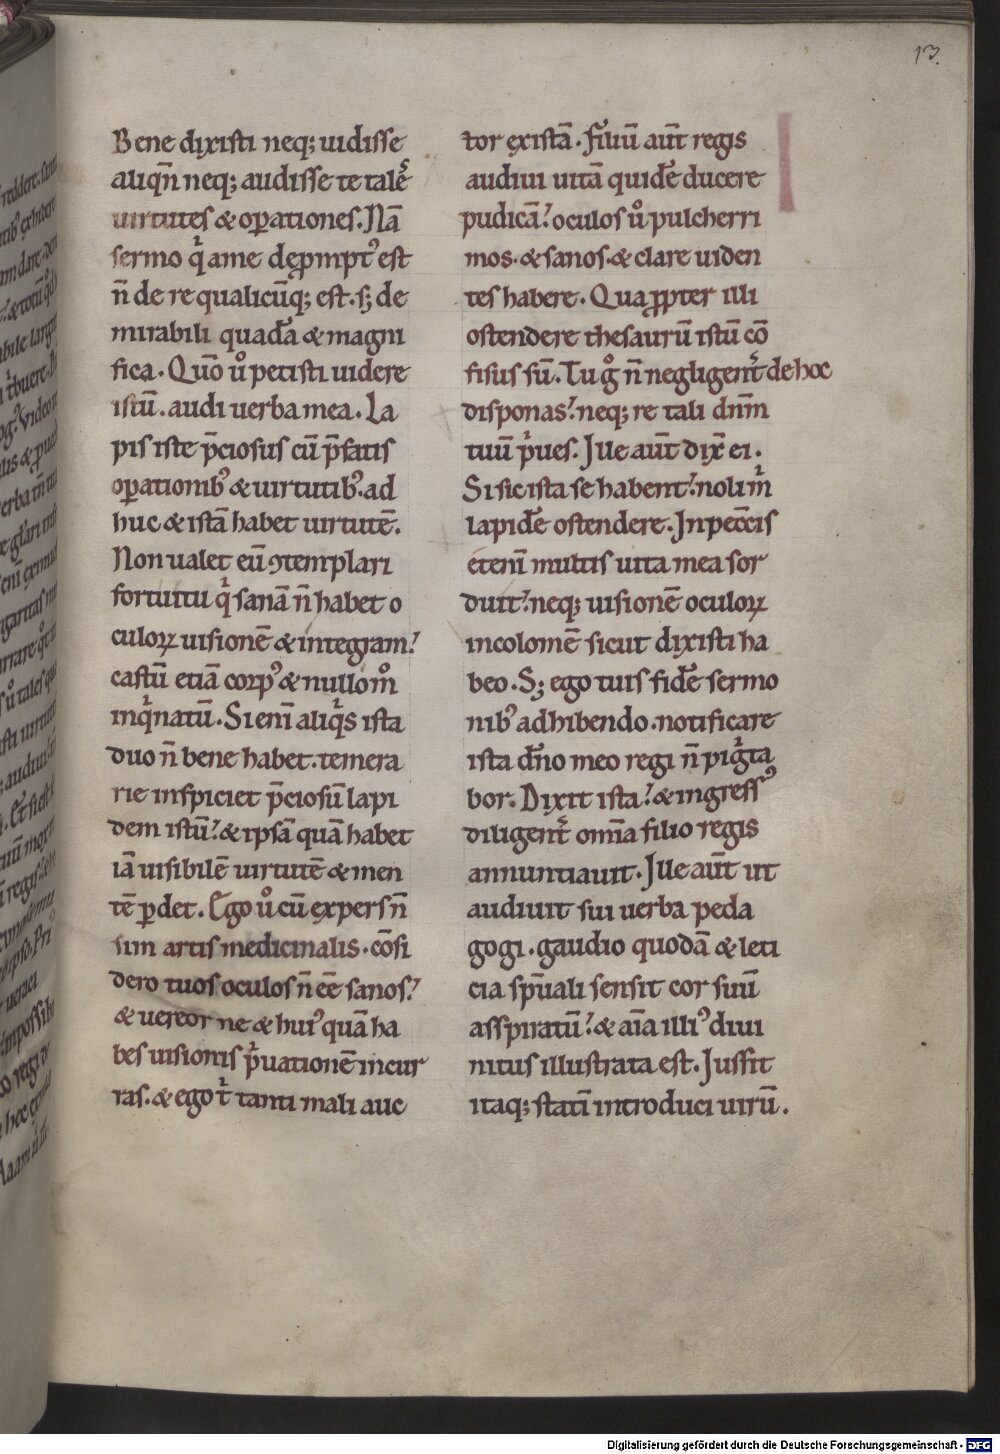 13.
Bene dixisti neq; uidisse
aliqn̄ neq; audisse te talē
uirtutes & oꝑationes. Nā
sermo qͥ a me deꝓmptꝰ est
n̄ de re qualicūq; est. s; de
mirabili quadā & magni
fica. Quō uͦ petisti uidere
istū. audi uerba mea. La
pis iste p̄ciosus cū p̄fatis
oꝑationibꝰ & uirtutibꝰ. ad
huc & istā habet uirtutē.
Non ualet eū ꝯtemplari
fortuitu qͥ sanā n̄ habet o
culoꝝ uisionē & integram?
castū etiā corpꝰ & nullo mͦ
inqͥnatū. Si eni̅ aliqͥs ista
duo n̄ bene habet. temera
rie inspiciet p̄ciosū lapi
dem istū? & ipsā quā habet
iā uisibilē uirtutē & men
tē ꝑdet. Ego uͦ cū expers n̄
sim artis medicinalis. cōsi
dero tuos oculos n̄ eē sanos?
& uereor ne & huiꝰ quā ha
bes uisionis pͥuationē incur
ras. & ego tͥ tanti mali auc
tor existā. Filiū aūt regis
audiui uitā quidē ducere
pudicā? oculos uͦ pulcherri
mos. & sanos. & clare uiden
tes habere. Qua ꝓpter illi
ostendere thesaurū istū cō
fisus sū. Tu gͦ n̄ negligent̄ de hoc
disponas? neq; re tali dnm̄
tuū pͥues. Ille aūt dix̄ ei.
Si sic ista se habent? noli mͥ
lapidē ostendere. In pecc̄is
eteni̅ multis uita mea sor
duit? neq; uisionē oculoꝝ
incolomē sicut dixisti ha
beo. S; ego tuis fidē sermo
nibꝰ adhibendo. notificare
ista dn̄o meo regi n̄ pigͥta
bor. Dixit ista? & ingressꝰ
diligent̄ omīa filio regis
annuntiauit. Ille aūt ut
audiuit sui uerba peda
gogi. gaudio quodā & leti
cia sp̄uali sensit cor suū
asspiratū? & aīa illiꝰ diui
nitus illustrata est. Iussit
itaq; stati̅ introduci uirū.
Digitalisierung gefördert durch die Deutsche Forschungsgemeinschaft - DFG